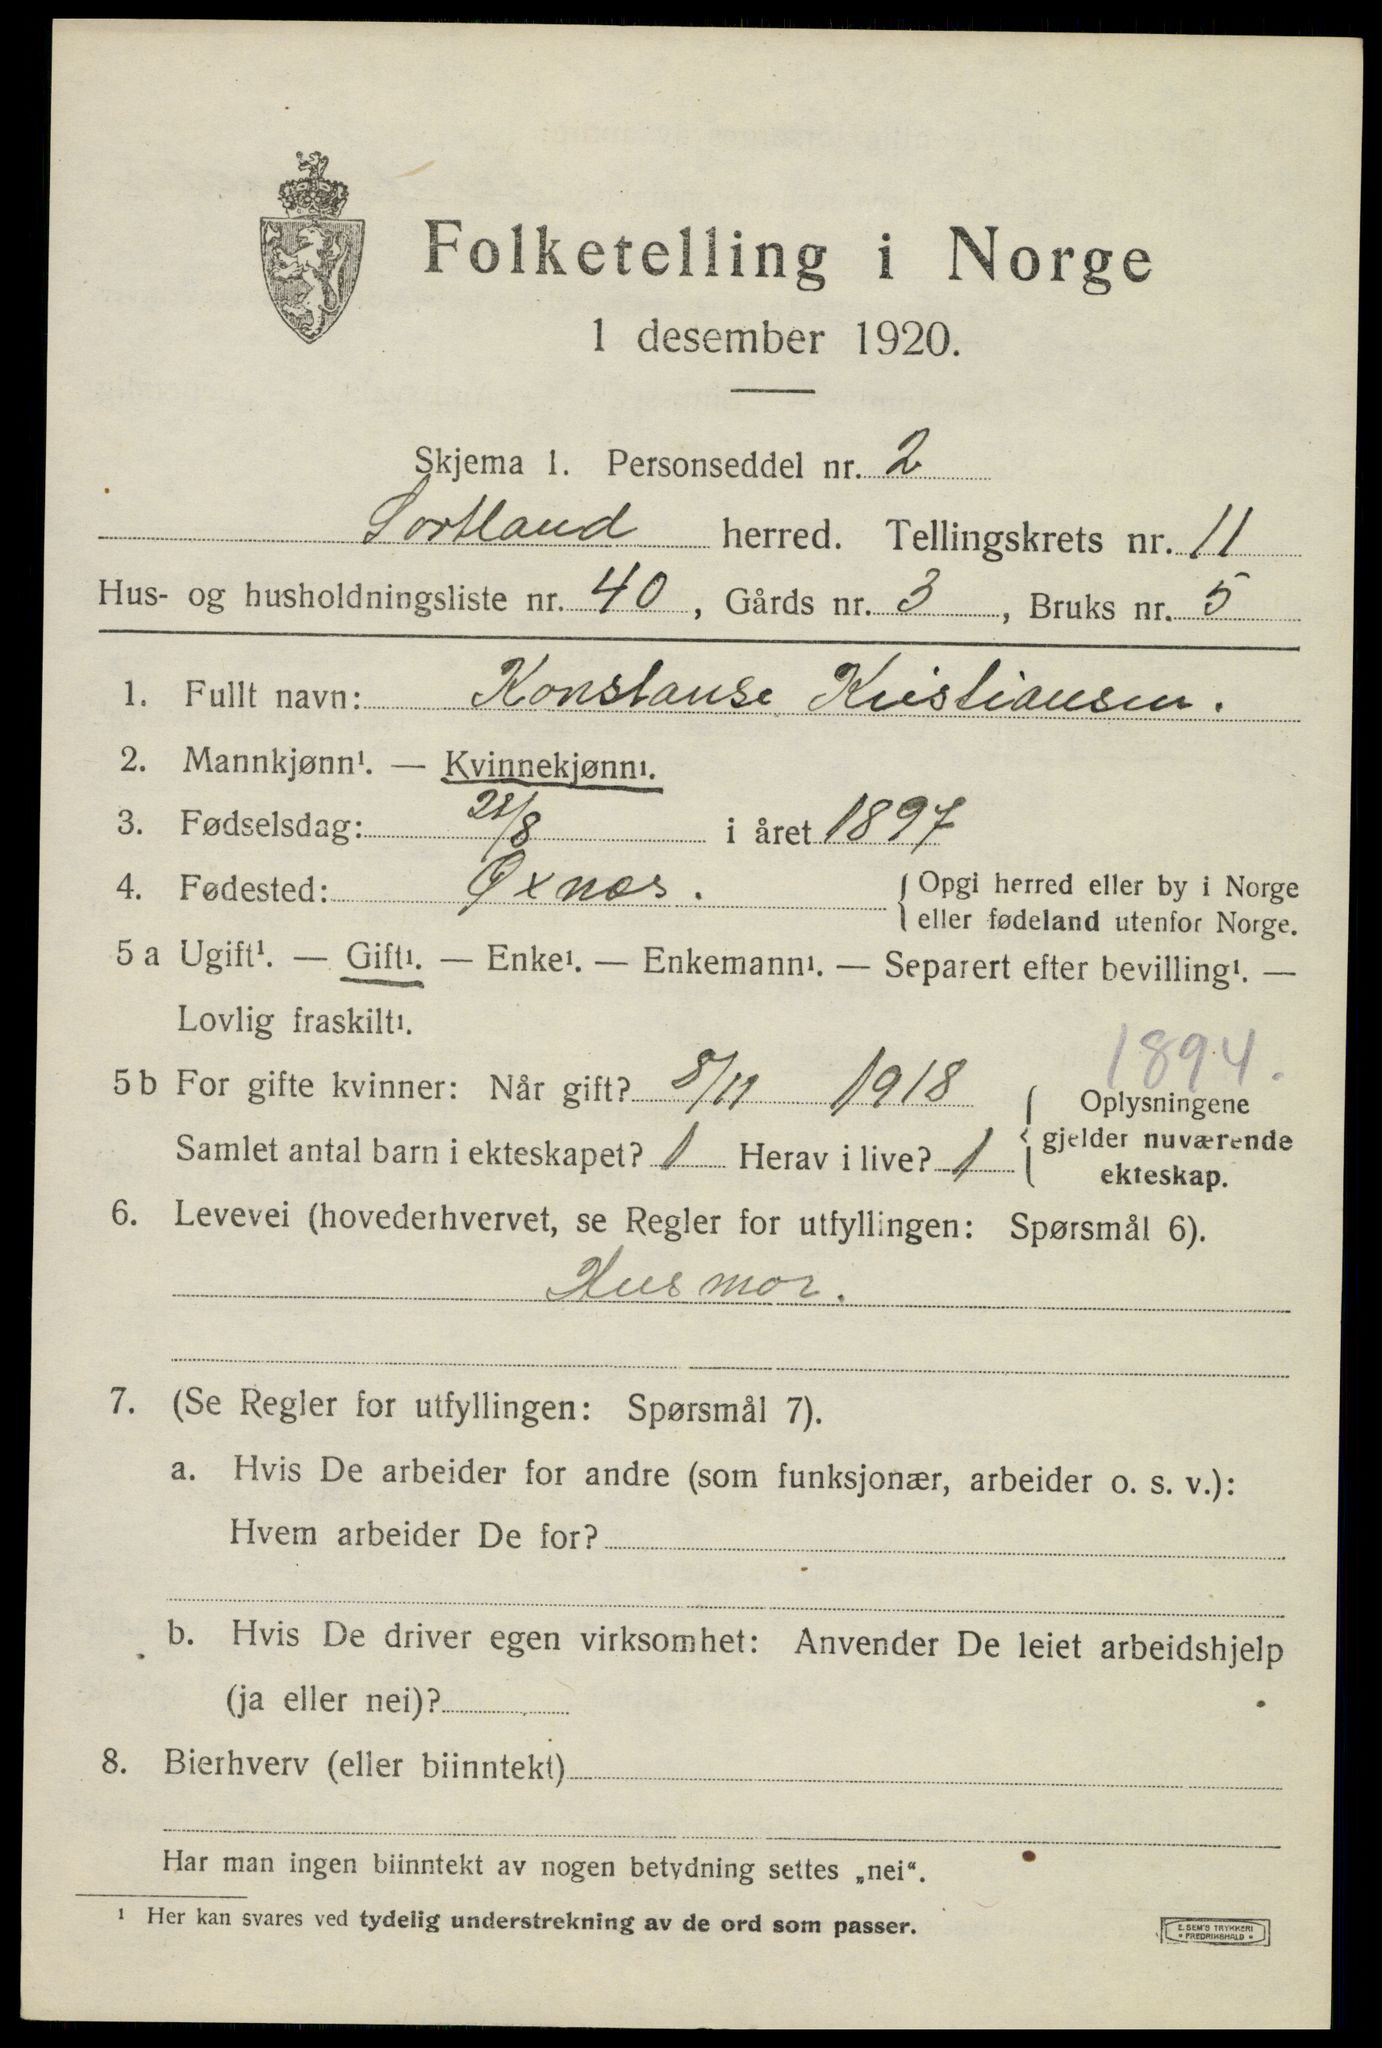 Folketelling i Norge
1 desember 1920.
Skjema 1. Personseddel nr. 2
Sortland herred. Tellingskrets nr. 11
Hus- og husholdningsliste nr. 40, Gårds nr. 3, Bruks nr. 5
1. Fullt navn: Konstanse Kristiansen.
2. Mannkjønn¹. — Kvinnekjønn¹.
3. Fødselsdag: 28/8 i året 1897
4. Fødested: Øxnes. { Opgi herred eller by i Norge
eller fødeland utenfor Norge.
5 a Ugift¹. — Gift¹. — Enke¹. — Enkemann¹. — Separert efter bevilling¹. —
Lovlig fraskilt¹.
1894.
5 b For gifte kvinner: Når gift? 8/11 1918 { Oplysningene
Samlet antal barn i ekteskapet? 1 Herav i live? 1 gjelder nuværende
ekteskap.
6. Levevei (hovederhvervet, se Regler for utfyllingen: Spørsmål 6).
Husmor.
7. (Se Regler for utfyllingen: Spørsmål 7).
a. Hvis De arbeider for andre (som funksjonær, arbeider o. s. v.):
Hvem arbeider De for?
b. Hvis De driver egen virksomhet: Anvender De leiet arbeidshjelp
(ja eller nei)?
8. Bierhverv (eller biinntekt)
Har man ingen biinntekt av nogen betydning settes „nei“.
¹ Her kan svares ved tydelig understrekning av de ord som passer.
E. SEM'S TRYKKERI
• FREDRIKSHALD •